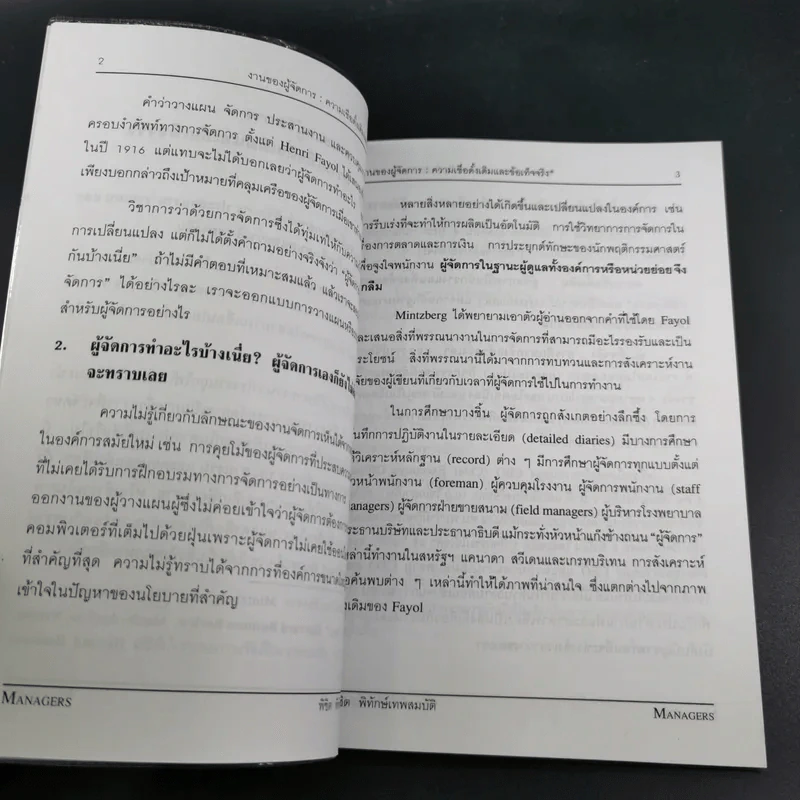 2
งานของผู้จัดการ : ความเชื่อดั้งเดิม
คำว่าวางแผน จัดการ ประสานงาน และควบคุม
ครอบงำศัพท์ทางการจัดการ ตั้งแต่ Henri Fayol ได้
ในปี 1916 แต่แทบจะไม่ได้บอกเลยว่าผู้จัดการทำอะไร
เพียงบอกกล่าวถึงเป้าหมายที่คลุมเครือของผู้จัดการเมื่อ
วิชาการว่าด้วยการจัดการซึ่งได้ทุ่มเทให้กับความ
การเปลี่ยนแปลง แต่ก็ไม่ได้ตั้งคำถามอย่างจริงจังว่า "ผู้จัดการ
กันบ้างเนี่ย" ถ้าไม่มีคำตอบที่เหมาะสมแล้ว แล้วเราจะ
จัดการ" ได้อย่างไรละ เราจะออกแบบการวางแผนหรือ
สำหรับผู้จัดการอย่างไร
2. ผู้จัดการทำอะไรบ้างเนี่ย? ผู้จัดการเองก็ยังไม่
จะทราบเลย
ความไม่รู้เกี่ยวกับลักษณะของงานจัดการเห็นได้จาก
ในองค์การสมัยใหม่ เช่น การคุยโม้ของผู้จัดการที่ประสบความ
ที่ไม่เคยได้รับการฝึกอบรมทางการจัดการอย่างเป็นทางการ
ออกงานของผู้วางแผนผู้ซึ่งไม่ค่อยเข้าใจว่าผู้จัดการต้องการ
คอมพิวเตอร์ที่เต็มไปด้วยฝุ่นเพราะผู้จัดการไม่เคยใช้
ที่สำคัญที่สุด ความไม่รู้ทราบได้จากการที่องค์การขนาด
เข้าใจในปัญหาของนโยบายที่สำคัญ
MANAGERS
พิชิต
งานของผู้จัดการ : ความเชื่อดั้งเดิมและข้อเท็จจริง*
3
หลายสิ่งหลายอย่างได้เกิดขึ้นและเปลี่ยนแปลงในองค์การ เช่น
การรีบเร่งที่จะทำให้การผลิตเป็นอัตโนมัติ การใช้วิทยาการการจัดการใน
เรื่องการตลาดและการเงิน การประยุกต์ทักษะของนักพฤติกรรมศาสตร์
เพื่อจูงใจพนักงาน ผู้จัดการในฐานะผู้ดูแลทั้งองค์การหรือหน่วยย่อย จึง
ถูกลืม
Mintzberg ได้พยายามเอาตัวผู้อ่านออกจากคำที่ใช้โดย Fayol
และเสนอสิ่งที่พรรณนางานในการจัดการที่สามารถมีอะไรรองรับและเป็น
ประโยชน์ สิ่งที่พรรณนานี้ได้มาจากการทบทวนและการสังเคราะห์งาน
วิจัยของผู้เขียนที่เกี่ยวกับเวลาที่ผู้จัดการใช้ไปในการทำงาน
ในการศึกษาบางชิ้น ผู้จัดการถูกสังเกตอย่างลึกซึ้ง โดยการ
บันทึกการปฏิบัติงานในรายละเอียด (detailed diaries) มีบางการศึกษา
วิเคราะห์หลักฐาน (record) ต่าง ๆ มีการศึกษาผู้จัดการทุกแบบตั้งแต่
หัวหน้าพนักงาน (foreman) ผู้ควบคุมโรงงาน ผู้จัดการพนักงาน (staff
managers) ผู้จัดการฝ่ายขายสนาม (field managers) ผู้บริหารโรงพยาบาล
ประธานบริษัทและประธานาธิบดี แม้กระทั่งหัวหน้าแก๊งข้างถนน "ผู้จัดการ"
เหล่านี้ทำงานในสหรัฐฯ แคนาดา สวีเดนและเกรทบริเทน การสังเคราะห์
ข้อค้นพบต่าง ๆ เหล่านี้ทำให้ได้ภาพที่น่าสนใจ ซึ่งแตกต่างไปจากภาพ
ดั้งเดิมของ Fayol
พิทักษ์เทพสมบัติ
MANAGERS